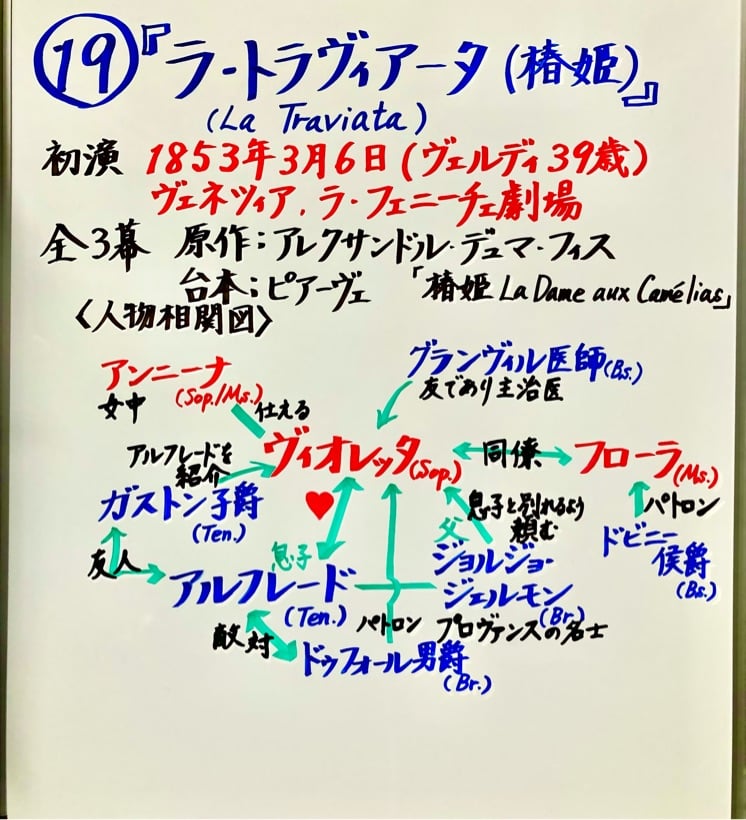 ⑲『ラ・トラヴィアータ(椿姫)』
(La Traviata)
初演 1853年3月6日(ヴェルディ39歳)
ヴェネツィア、ラ・フェニーチェ劇場
全3幕 原作:アレクサンドル・デュマ・フィス
台本:ピアーヴェ 「椿姫 La Dame aux Camélias」
〈人物相関図〉
アンニーナ
(Sop./Ms.)
女中
仕える
グランヴィル医師(Bs.)
友であり主治医
アルフレードを
紹介
ヴィオレッタ(Sop.)
同僚
フローラ(Ms.)
ガストン子爵
(Ten.)
息子と別れるよう
頼む
パトロン
ドビニー
侯爵
(Bs.)
友人
息子
父
アルフレード
(Ten.)
ジョルジョ・
ジェルモン
(Br.)
プロヴァンスの名士
敵対
パトロン
ドゥフォール男爵
(Br.)